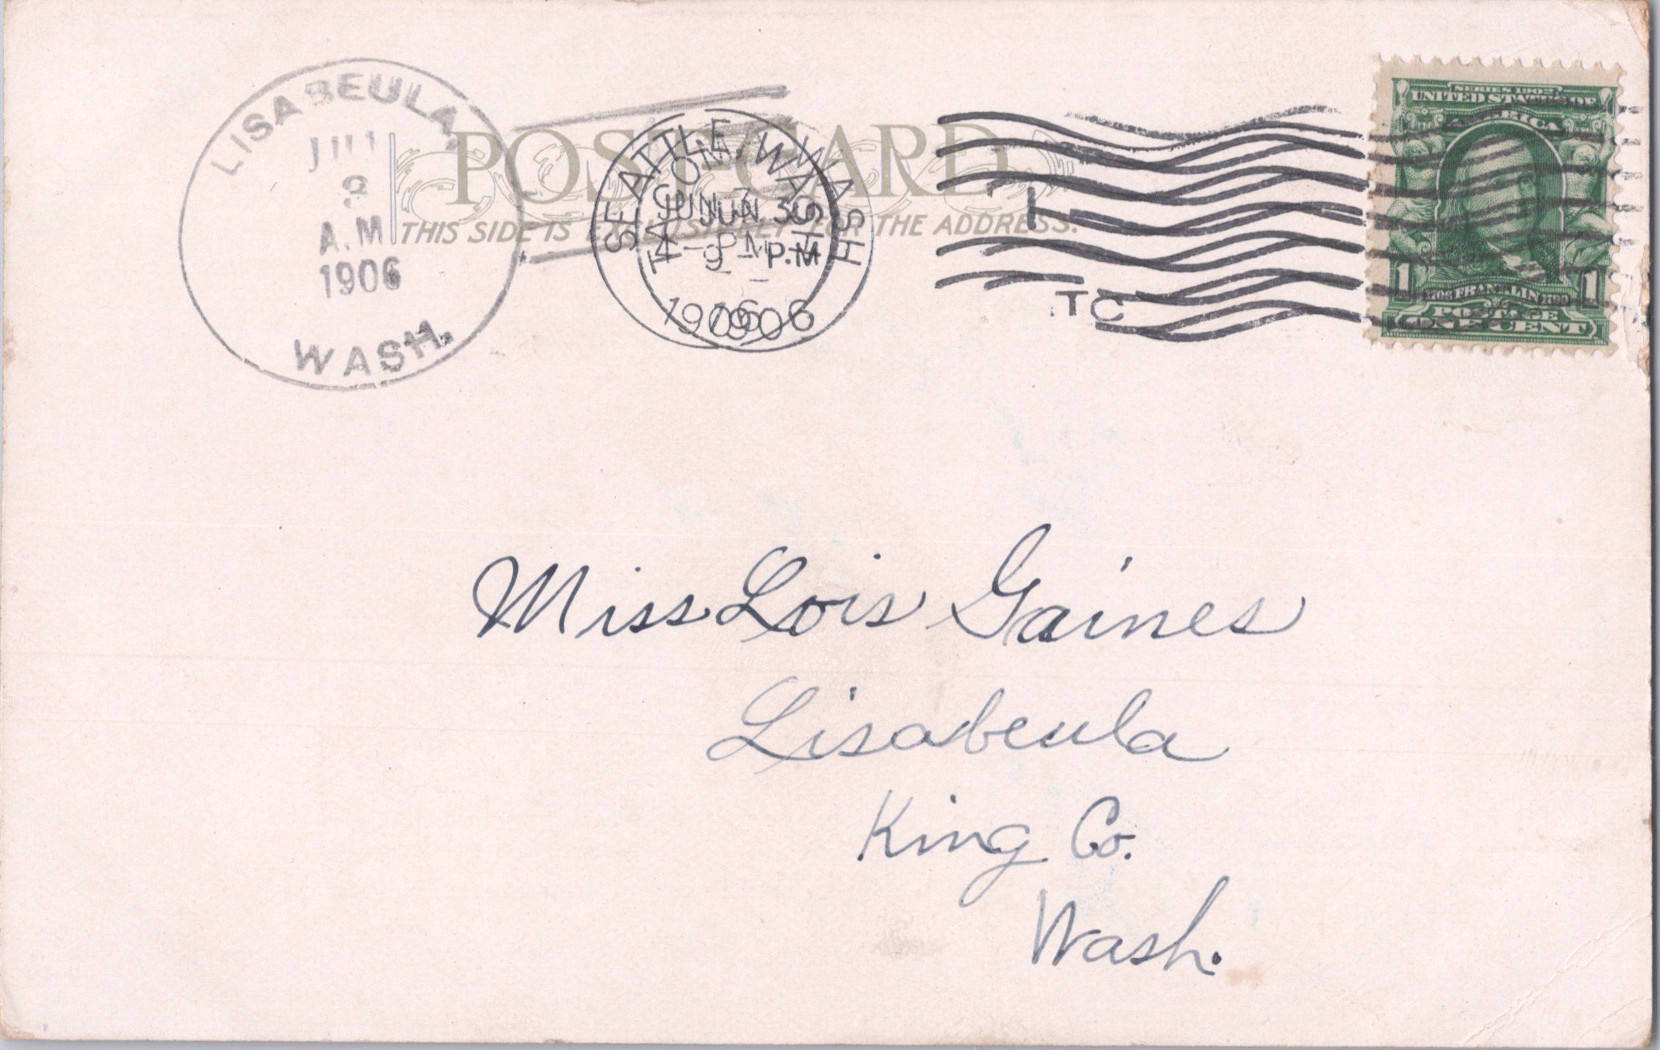 LISABEULA,
A.M
1906
WASH.
POST CARD
THIS SIDE IS EXCLUSIVELY FOR THE ADDRESS.
SEATTLE, WASH
TACOMA WASH
JUN JUN 30
PM P.M
1906 1906
1
TC
SERIES 1902
UNITED STATES OF
AMERICA
1 1706 FRANKLIN 1790 1
POSTAGE
ONE CENT
Miss Lois Gaines
Lisabeula
King Co.
Wash.